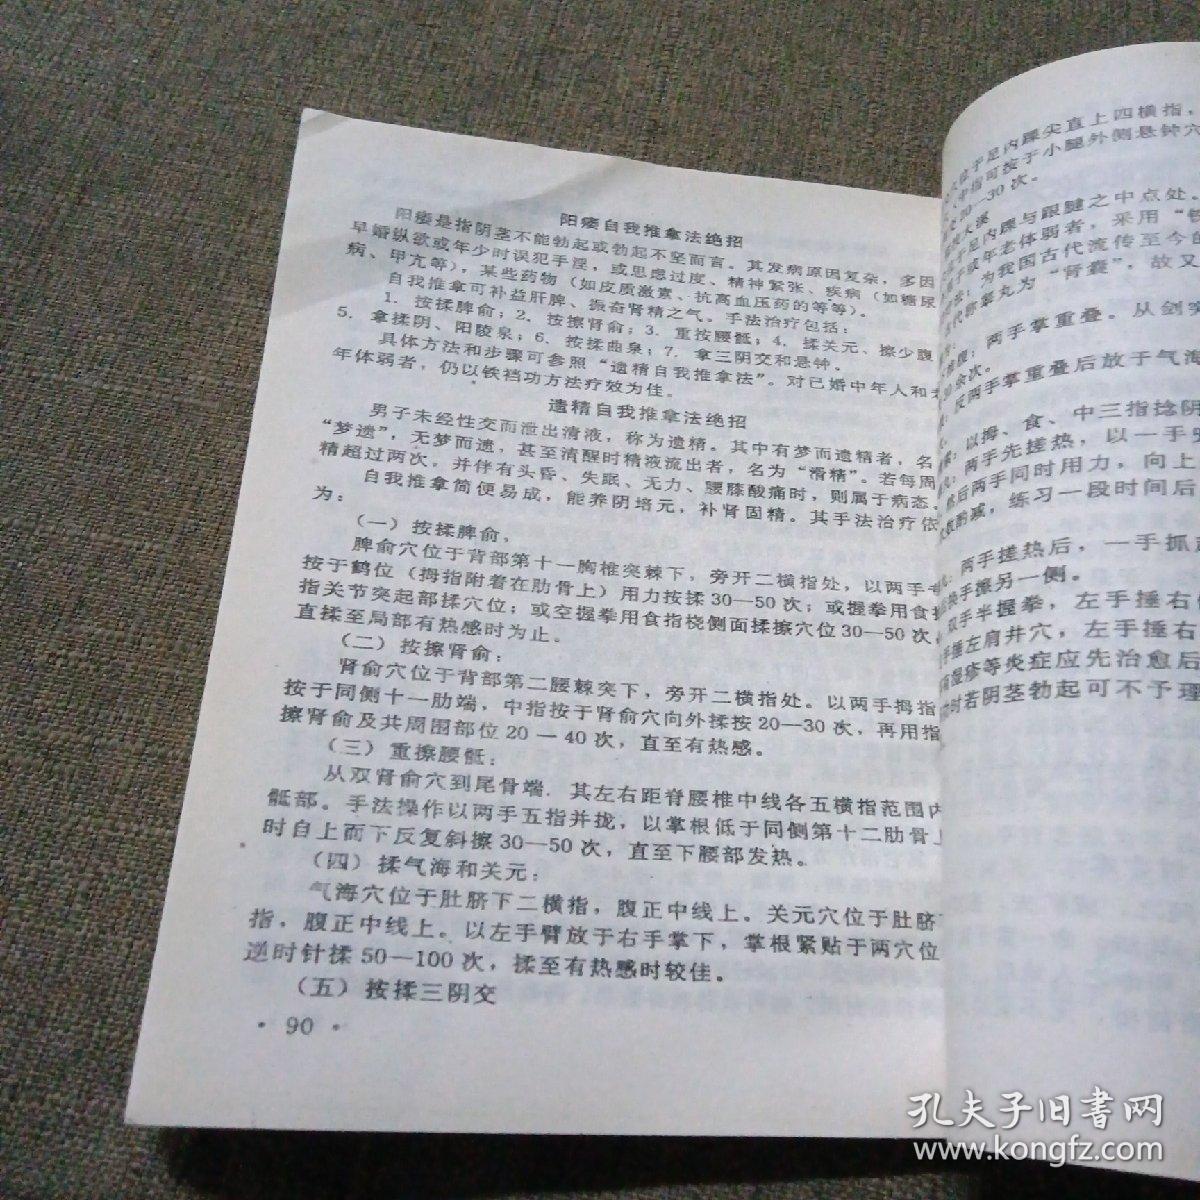 阳痿自我推拿法绝招
阳痿是指阴茎不能勃起或勃起不坚而言。其发病原因复杂，多因
早婚纵欲或年少时误犯手淫，或思虑过度、精神紧张、疾病（如糖尿
病、甲亢等），某些药物（如皮质激素、抗高血压药的等等）。
自我推拿可补益肝脾、振奋肾精之气。手法治疗包括：
1．按揉脾俞；2．按擦肾俞；3．重按腰骶；4．揉关元、擦少腹
5．拿揉阴、阳陵泉；6．按揉曲泉；7．拿三阴交和悬钟。
具体方法和步骤可参照“遗精自我推拿法”。对已婚中年人和老
年体弱者，仍以铁裆功方法疗效为佳。
遗精自我推拿法绝招
男子未经性交而泄出清液，称为遗精。其中有梦而遗精者，名
“梦遗”，无梦而遗，甚至清醒时精液流出者，名为“滑精”。若每周
精超过两次，并伴有头昏、失眠、无力、腰膝酸痛时，则属于病态。
自我推拿简便易成，能养阴培元，补肾固精。其手法治疗依
为：
（一）按揉脾俞，
脾俞穴位于背部第十一胸椎突棘下，旁开二横指处，以两手
按于鹤位（拇指附着在肋骨上）用力按揉30—50次；或握拳用食
指关节突起部揉穴位；或空握拳用食指桡侧面揉擦穴位30—50次，
直揉至局部有热感时为止。
（二）按擦肾俞：
肾俞穴位于背部第二腰棘突下，旁开二横指处。以两手拇指
按于同侧十一肋端，中指按于肾俞穴向外揉按20—30次，再用指
擦肾俞及共周围部位20—40次，直至有热感。
（三）重擦腰骶：
从双肾俞穴到尾骨端．其左右距脊腰椎中线各五横指范围内
骶部。手法操作以两手五指并拢，以掌根低于同侧第十二肋骨上
时自上而下反复斜擦30—50次，直至下腰部发热。
（四）揉气海和关元：
气海穴位于肚脐下二横指，腹正中线上。关元穴位于肚脐
指，腹正中线上。以左手臂放于右手掌下，掌根紧贴于两穴位
逆时针揉50—100次，揉至有热感时较佳。
（五）按揉三阴交
·90·
位于足内踝尖直上四横指，
中指可按于小腿外侧悬钟穴
20—30次。
太溪
足内踝与跟腱之中点处，
或年老体弱者，采用“铁
法；为我国古代流传至今的
代称睾丸为“肾囊”，故又
腹：两手掌重叠。从剑突
30余次。
两手掌重叠后放于气海
以拇、食、中三指捻阴
两手先搓热，以一手
然后两手同时用力，向上
次数酌减，练习一段时间后
两手搓热后，一手抓
换手擦另一侧。
双手半握拳，左手捶右
手捶左肩井穴，左手捶右
有湿疹等炎症应先治愈后
时若阴茎勃起可不予理
孔夫子旧书网
www.kongfz.com